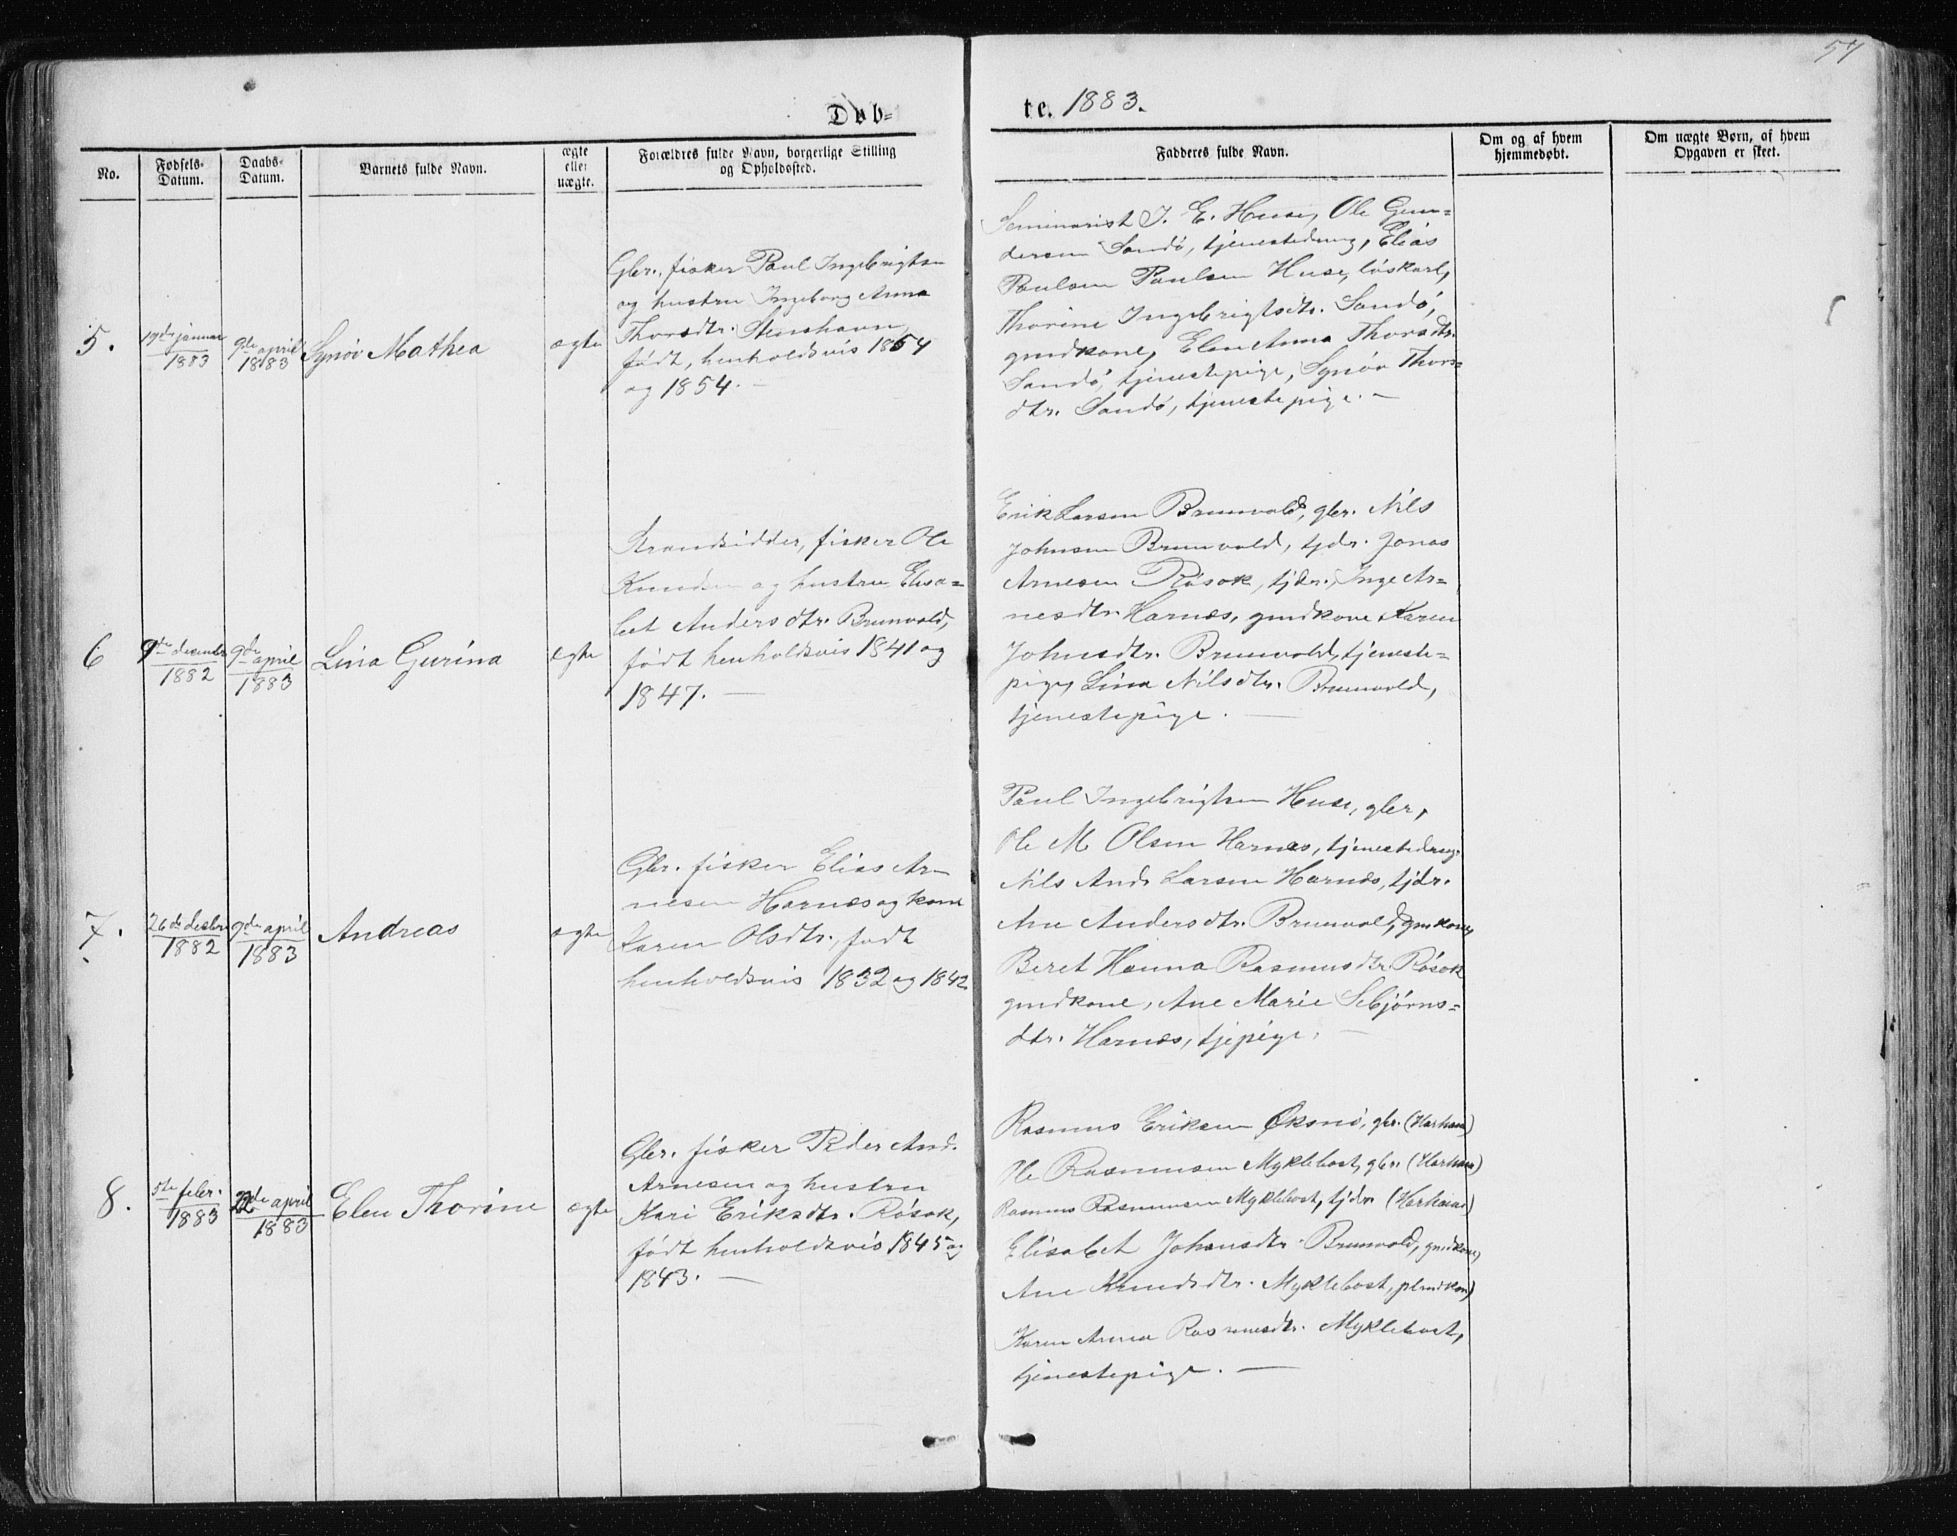 57
Døbte. 1883.
No.
Fødsels-
Datum.
Daabs-
Datum.
Barnets fulde Navn.
ægte
eller
uægte.
Forældres fulde Navn, borgerlige Stilling
og Opholdssted.
Fadderes fulde Navn.
Om og af hvem
hjemmedøbt.
Om uægte Børn, af hvem
Opgaven er skeet.
5.
19de januar
1883
9de april
1883
Synøv Mathea
ægte
Gbr., fisker Paul Ingebrigtsen
og hustru Ingeborg Anna
Thorsdtr. Stenshavn,
født, henholdsvis 1854
og 1854. —
Seminarist J. E. Huse, Ole Gun-
dersen Sandø, tjenestedreng, Elias
Paulsen Paulsen Huse, løskarl,
Thorine Ingebrigtsdtr. Sandø,
gmdkone, Elen Anna Thorsdtr.
Sandø, tjenestepige, Synøv Thors-
dtr. Sandø, tjenestepige. —
6
9de december
1882
9de april
1883
Lina Gurina
ægte
Strandsidder, fisker Ole
Knudsen og hustru Elisa-
bet Andersdtr. Brunvold,
født henholdsvis 1841 og
1847. —
Erik Larsen Brunvold, gbr. Nils
Johnsen Brunvold, tjdr. Jonas
Arnesen Røsok, tjdr. Inge Ar-
nesdtr. Harnes, gmdkone Karen
Johnsdtr. Brunvold, tjeneste-
pige, Lina Nilsdtr. Brunvold,
tjenestepige. —
7.
26de decbr
1882
9de april
1883
Andreas
ægte
Gbr. fisker Elias Ar-
nesen Harnes og kone
Karen Olsdtr., født
henholdsvis 1832 og 1842
Paul Ingebrigtsen Huse, gbr,
Ole M Olsen Harnæs, tjenestedreng.
Nils Andr Larsen Harnæs, tjdr.
Ane Andersdtr. Brunvold, gmkone,
Beret Hanna Rasmusdtr. Røsok
gmdkone, Ane Marie Sebjørns-
dtr. Harnæs, tjepige. —
8.
5te febr.
1883
22de april
1883
Elen Thorine
ægte
Gbr. fisker Peder And.
Arnesen og hustru
Kari Eriksdtr. Røsok,
født henholdsvis 1845 og
1843. —
Rasmus Eriksen Øksnø, gbr. (Harham)
Ole Rasmusen Myklebost, gbr. (Harham)
Rasmus Rasmusen Myklebost, tjdr. (Harham)
Elisabet Johansdtr. Brunvold, gmdkone,
Ane Knudsdtr. Myklebost,
Karen Anna Rasmusdtr. Myklebost,
tjenestepige. —